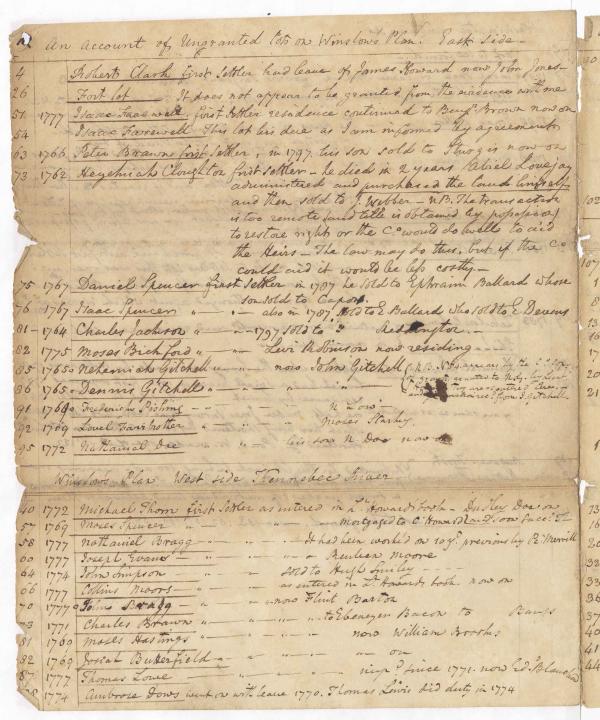 An account of Ungranted lots on Winslow's Plan. East side
4 Robert Clark first Settler had leave of James Howard now John Jones
26 Fort lot It does not appear to be granted from the evidence with me
51 1777 Isaac Farewell, first Settler residence continued to Benjn Brown now on
54 Isaac Farewell This lot his due as I am informed by agreement
63 1766 Peter Brawn first settler, in 1797 his son sold to now on
73 1762 Hezekiah Cloughton first Settler - he died in 2 years Abiel Lovejoy
administered and purchased the land himself
and then sold to J. Webber - NB. The transaction
is too remote (and title is obtained by possession)
to restore right or the Co would do well to aid
the Heirs - The law may do this, but if the Co
could aid it would be less costly -
75 1767 Daniel Spencer first Settler in 1787 he sold to Ephraim Ballard whose
son sold to Capon.
76 1767 Isaac Spencer " - " - also in 1787, sold to E Ballard who sold to E Devens
81 - 1764 Charles Jackson " - " - 1797 sold to
82 1775 Moses Bickford " - " - Levi Robinson now residing
85 1765 Nehemiah Gitchell " - " - now John Gitchell (NB. appears by the
86 1765 Dennis Gitchell " - " - " - "
and from J gitchell
91 1769 Frederick - " - " - N now
92 1769 Lovel Fairbrother - " - Moses
95 1772 Nathaniel Doe " - his son N Doe now on
Winslow's Plan West side Kennebec River
40 1772 Michael Thorn first Settler as entered in Lt Howards book - Dudley Doe on
57 1769 Moses Spencer " - " - " - Mortgaged to C Howard
58 1777 Nathaniel Bragg - " - " - It had been work'd on 10 ys previous by Merrill
60 1777 Joseph Evans - " - " - " Reuben Moore
64 1774 John Simpson - " - sold to Hugh
66 1777 Collins Moors - " - " - as entered in Lt Howards book now on
70 1777 John Bragg - " - " - now Flint Barton
73 1771 Charles Brawn " - " - to Ebenezer Bacon to
81 1769 Moses Hastings " - " - " - now William Brooks
82 1769 Josiah Butterfield - " - " - on
87 1777 Thomas Lowe - " - " since 1771. now
1774 Ambrose Dows went on with leave 1770. Thomas Lewis did duty in 1774